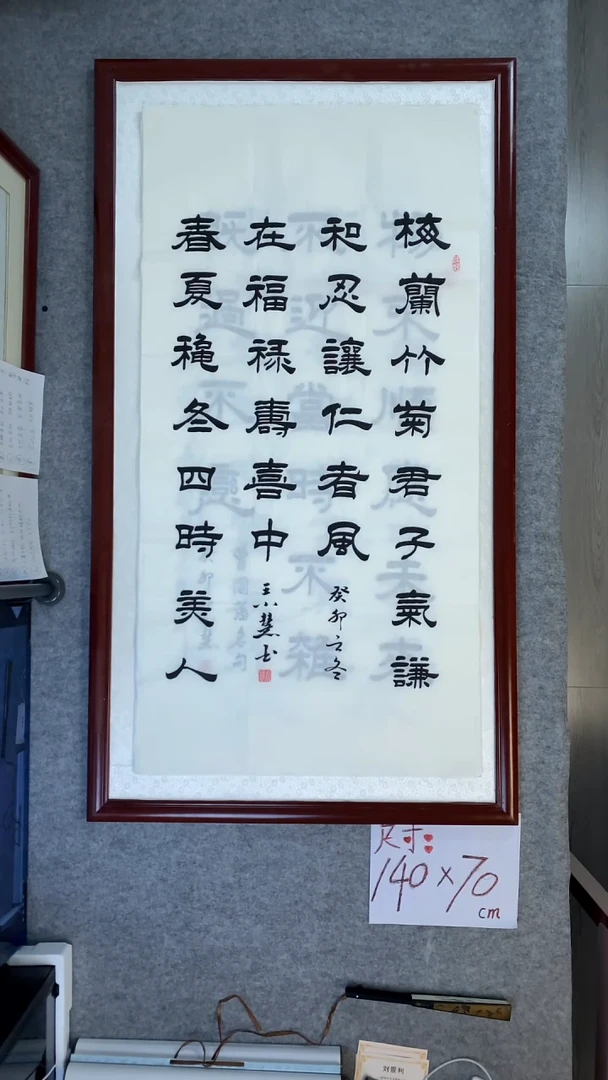 梅蘭竹菊君子氣謙
和忍讓仁者風
癸卯立冬
在福禄壽喜中
王小慧书
春夏穐冬四時美人
尺寸:
140×70
cm